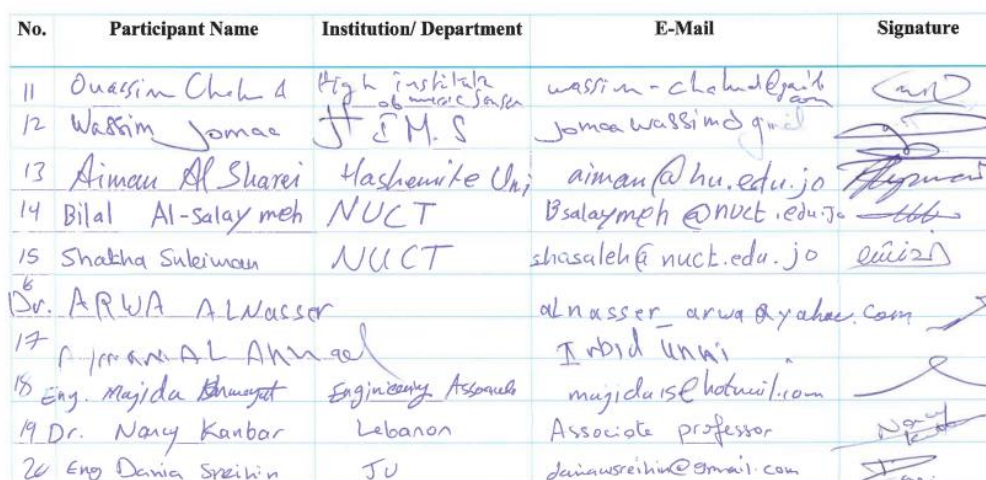 No. Participant Name Institution/ Department E-Mail Signature
11 Ouassim High institute of music Sousse
12 Wassim Jomaa H I M. S
13 Aiman Al Sharei Hashemite Uni aiman@hu.edu.jo
14 Bilal Al-salaymeh NUCT Bsalaymeh @nuct.edu.jo
15 Shatha Suleiman NUCT shasaleh@nuct.edu.jo
16 Dr. ARWA ALNasser alnasser_arwa@yahoo.com
17 AL Irbid
18 Eng. Majida Engineering
19 Dr. Nancy Kanbar Lebanon Associate professor Nancy
20 Eng Dania Sreihin JU daniawsreihin@gmail.com